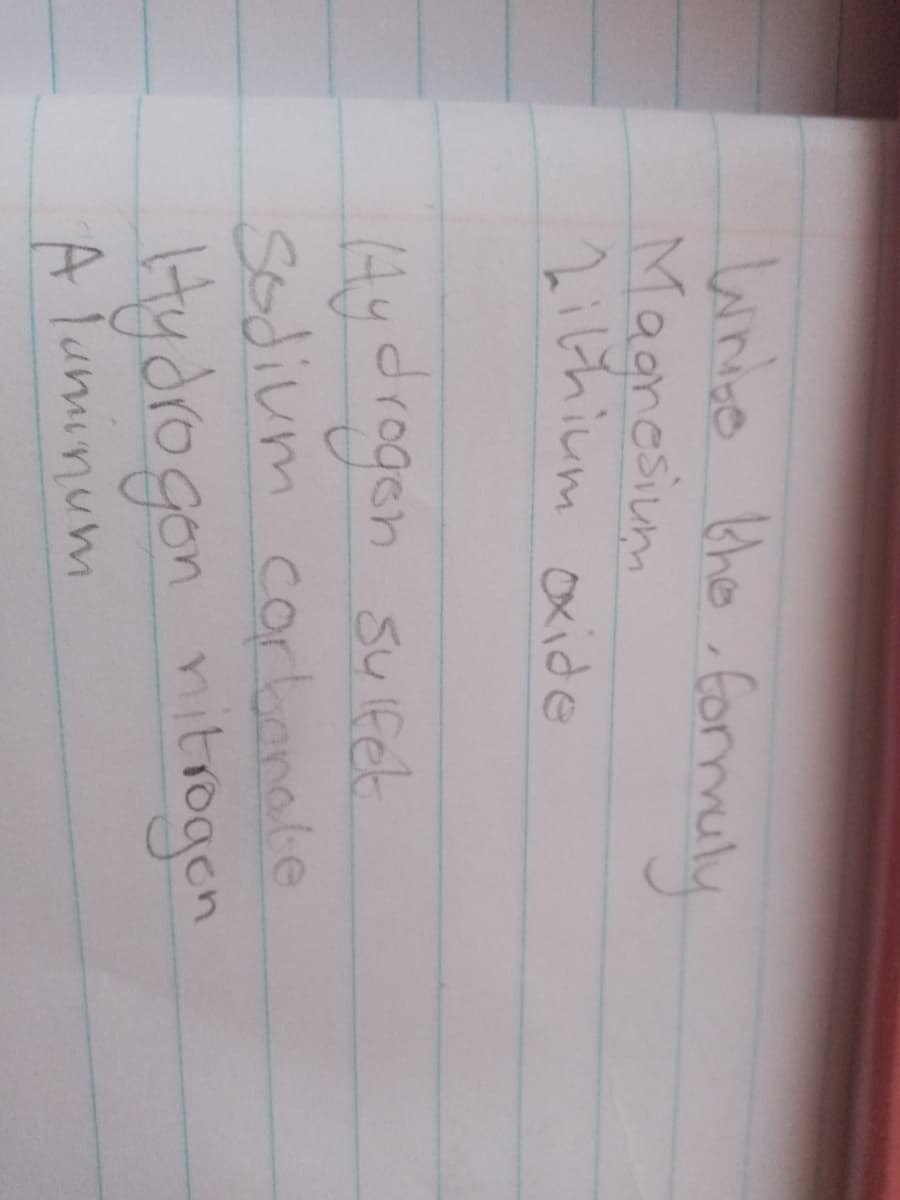 write the formuly
Magnesium
Lithium oxide
Hydrogen sulfet
Sodium carbonate
Hydrogen nitrogen
Aluminum